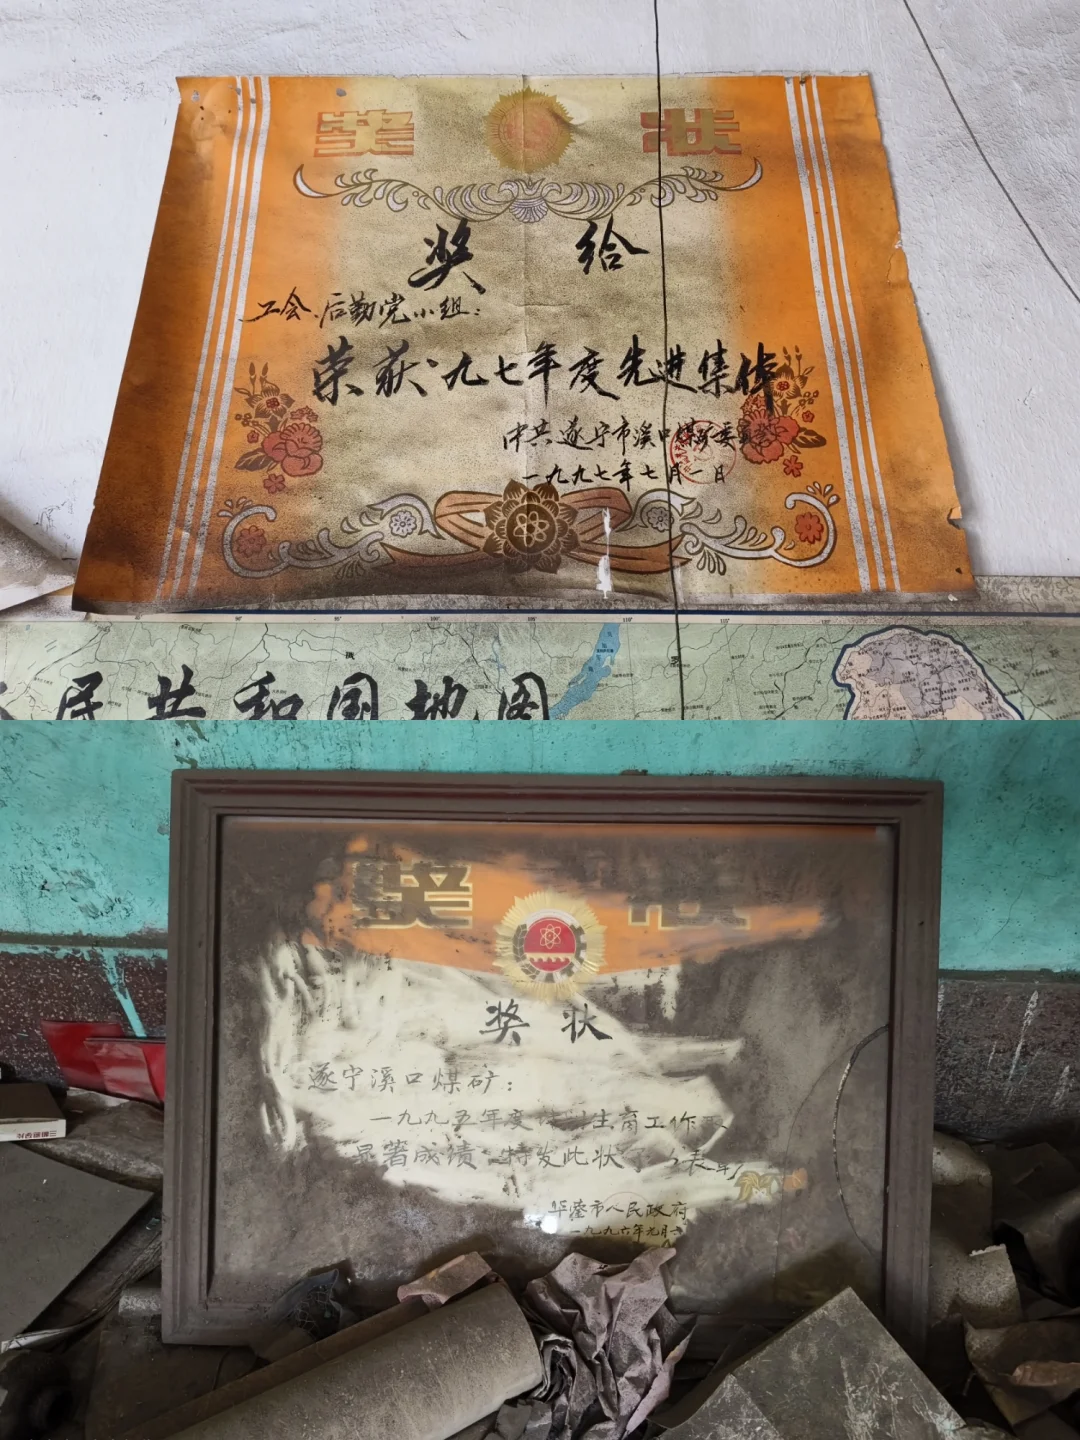 奖 状
奖 给
工会、后勤党小组：
荣获九七年度先进集体
中共遂宁市溪口煤矿委员会
一九九七年七月一日
民共和国地图
奖 状
奖 状
遂宁溪口煤矿：
一九九五年度计划生育工作
显著成绩 特发此状 表
华蓥市人民政府
一九九六年元月